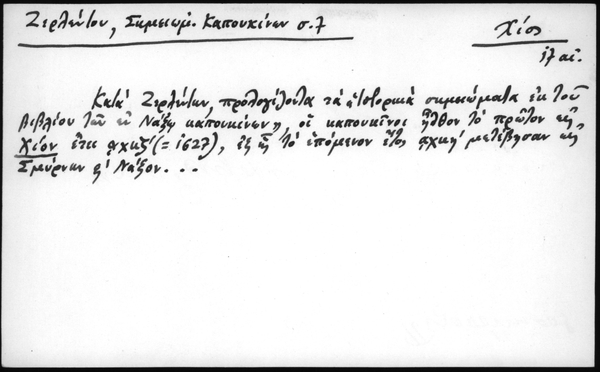 Ζερλέντου, Σημειώμ. Καπουκίνων σ. 7
Χίος
17 αἰ.
Κατά Ζερλέντην, προλογίζοντα τά "ἱστορικά σημειώματα ἐκ τοῦ
βιβλίου τῶν ἐν Νάξῳ καπουκίνων", οἱ καπουκῖνοι ἦλθον τό πρῶτον εἰς
Χίον ἔτει ͵αχκζ' (= 1627), ἐξ ἧς τό ἑπόμενον ἔτος ͵αχκη' μετέβησαν εἰς
Σμύρνην ϗ' Νάξον. . .